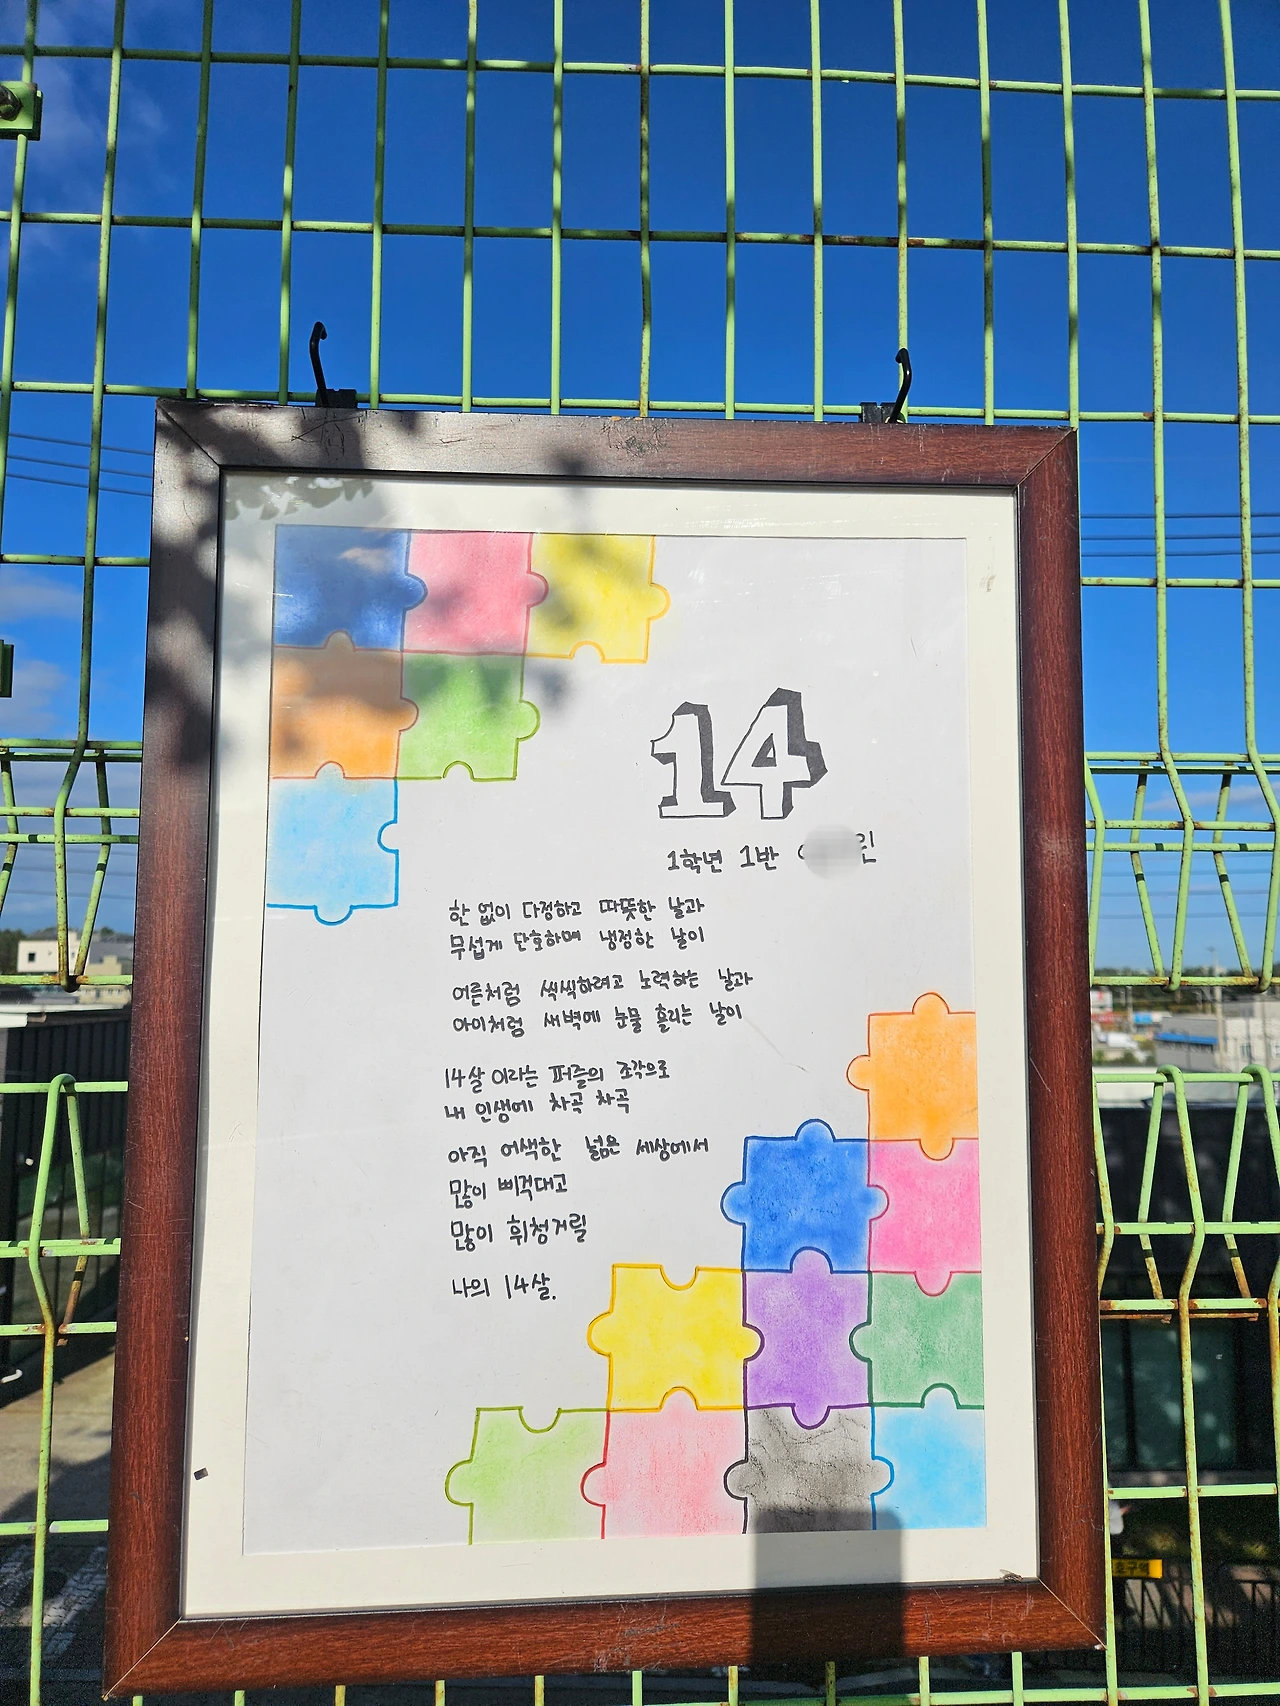 14
1학년 1반
한 없이 다정하고 따뜻한 날과
무섭게 단호하며 냉정한 날이
어른처럼 씩씩하려고 노력하는 날과
아이처럼 새벽에 눈물 흘리는 날이
14살 이라는 퍼즐의 조각으로
내 인생에 차곡 차곡
아직 어색한 넓은 세상에서
많이 삐걱대고
많이 휘청거릴
나의 14살.